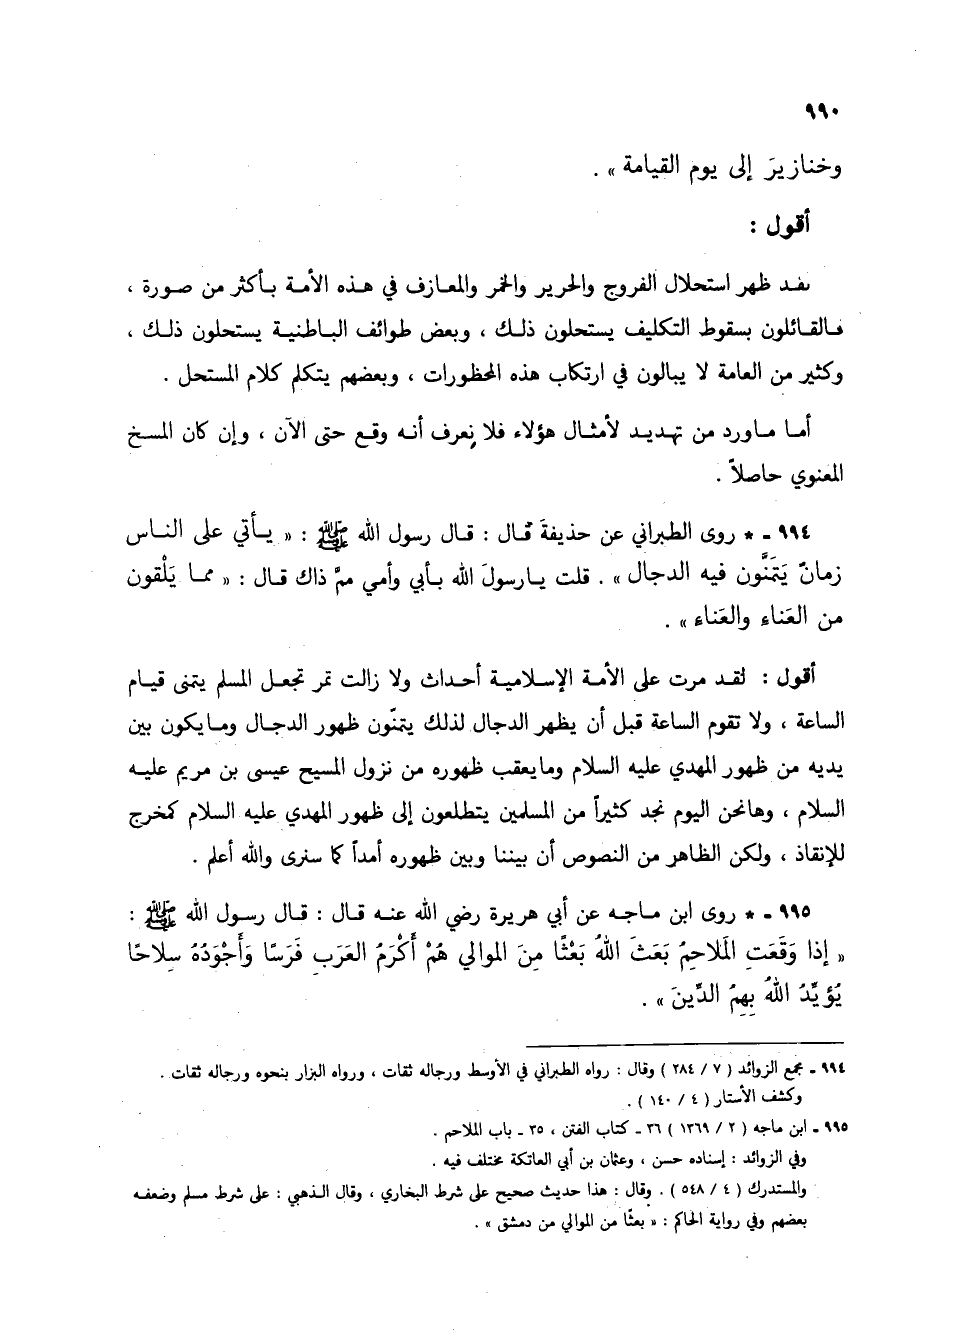 ٩٩٠
وخنازيرَ إلى يوم القيامة » .
أقول :
لقد ظهر استحلال الفروج والحرير والخمر والمعازف في هذه الأمة بأكثر من صورة ،
فالقائلون بسقوط التكليف يستحلون ذلك ، وبعض طوائف الباطنية يستحلون ذلك ،
وكثير من العامة لا يبالون في ارتكاب هذه المحظورات ، وبعضهم يتكلم كلام المستحل .
أما ماورد من تهديد لأمثال هؤلاء فلا نعرف أنه وقع حتى الآن ، وإن كان المسخ
المعنوي حاصلاً .
٩٩٤ - * روى الطبراني عن حذيفةَ قال : قال رسول الله ﷺ : « يأتي على الناس
زمانٌ يَتَمَنَّون فيه الدجال » . قلت يارسولَ الله بأبي وأمي ممَّ ذاك قال : « مما يَلْقون
من العَناء والعَناء » .
أقول : لقد مرت على الأمة الإسلامية أحداث ولا زالت تمر تجعل المسلم يتمنى قيام
الساعة ، ولا تقوم الساعة قبل أن يظهر الدجال لذلك يتمنّون ظهور الدجال ومايكون بين
يديه من ظهور المهدي عليه السلام ومايعقب ظهوره من نزول المسيح عيسى بن مريم عليه
السلام ، وهانحن اليوم نجد كثيراً من المسلمين يتطلعون إلى ظهور المهدي عليه السلام كمخرج
للإنقاذ ، ولكن الظاهر من النصوص أن بيننا وبين ظهوره أمداً كما سنرى والله أعلم .
٩٩٥ - * روى ابن ماجه عن أبي هريرة رضي الله عنه قال : قال رسول الله ﷺ :
« إذا وَقَعَتِ المَلاحِمُ بَعَثَ اللهُ بَعْثًا مِنَ الموالي هُمْ أَكْرَمُ العَرَبِ فَرَسًا وَأَجْوَدُهُ سِلاحًا
يُؤيِّدُ اللهُ بِهِمُ الدِّينَ » .
٩٩٤ - مجمع الزوائد ( ٧ / ٢٨٤ ) وقال : رواه الطبراني في الأوسط ورجاله ثقات ، ورواه البزار بنحوه ورجاله ثقات .
وكشف الأستار ( ٤ / ١٤٠ ) .
٩٩٥ - ابن ماجه ( ٢ / ١٣٦٩ ) ٣٦ - كتاب الفتن ، ٣٥ - باب الملاحم .
وفي الزوائد : إسناده حسن ، وعثمان بن أبي العاتكة مختلف فيه .
والمستدرك ( ٤ / ٥٤٨ ) . وقال : هذا حديث صحيح على شرط البخاري ، وقال الذهبي : على شرط مسلم وضعفه
بعضهم وفي رواية الحاكم : « بعثًا من الموالي من دمشق » .